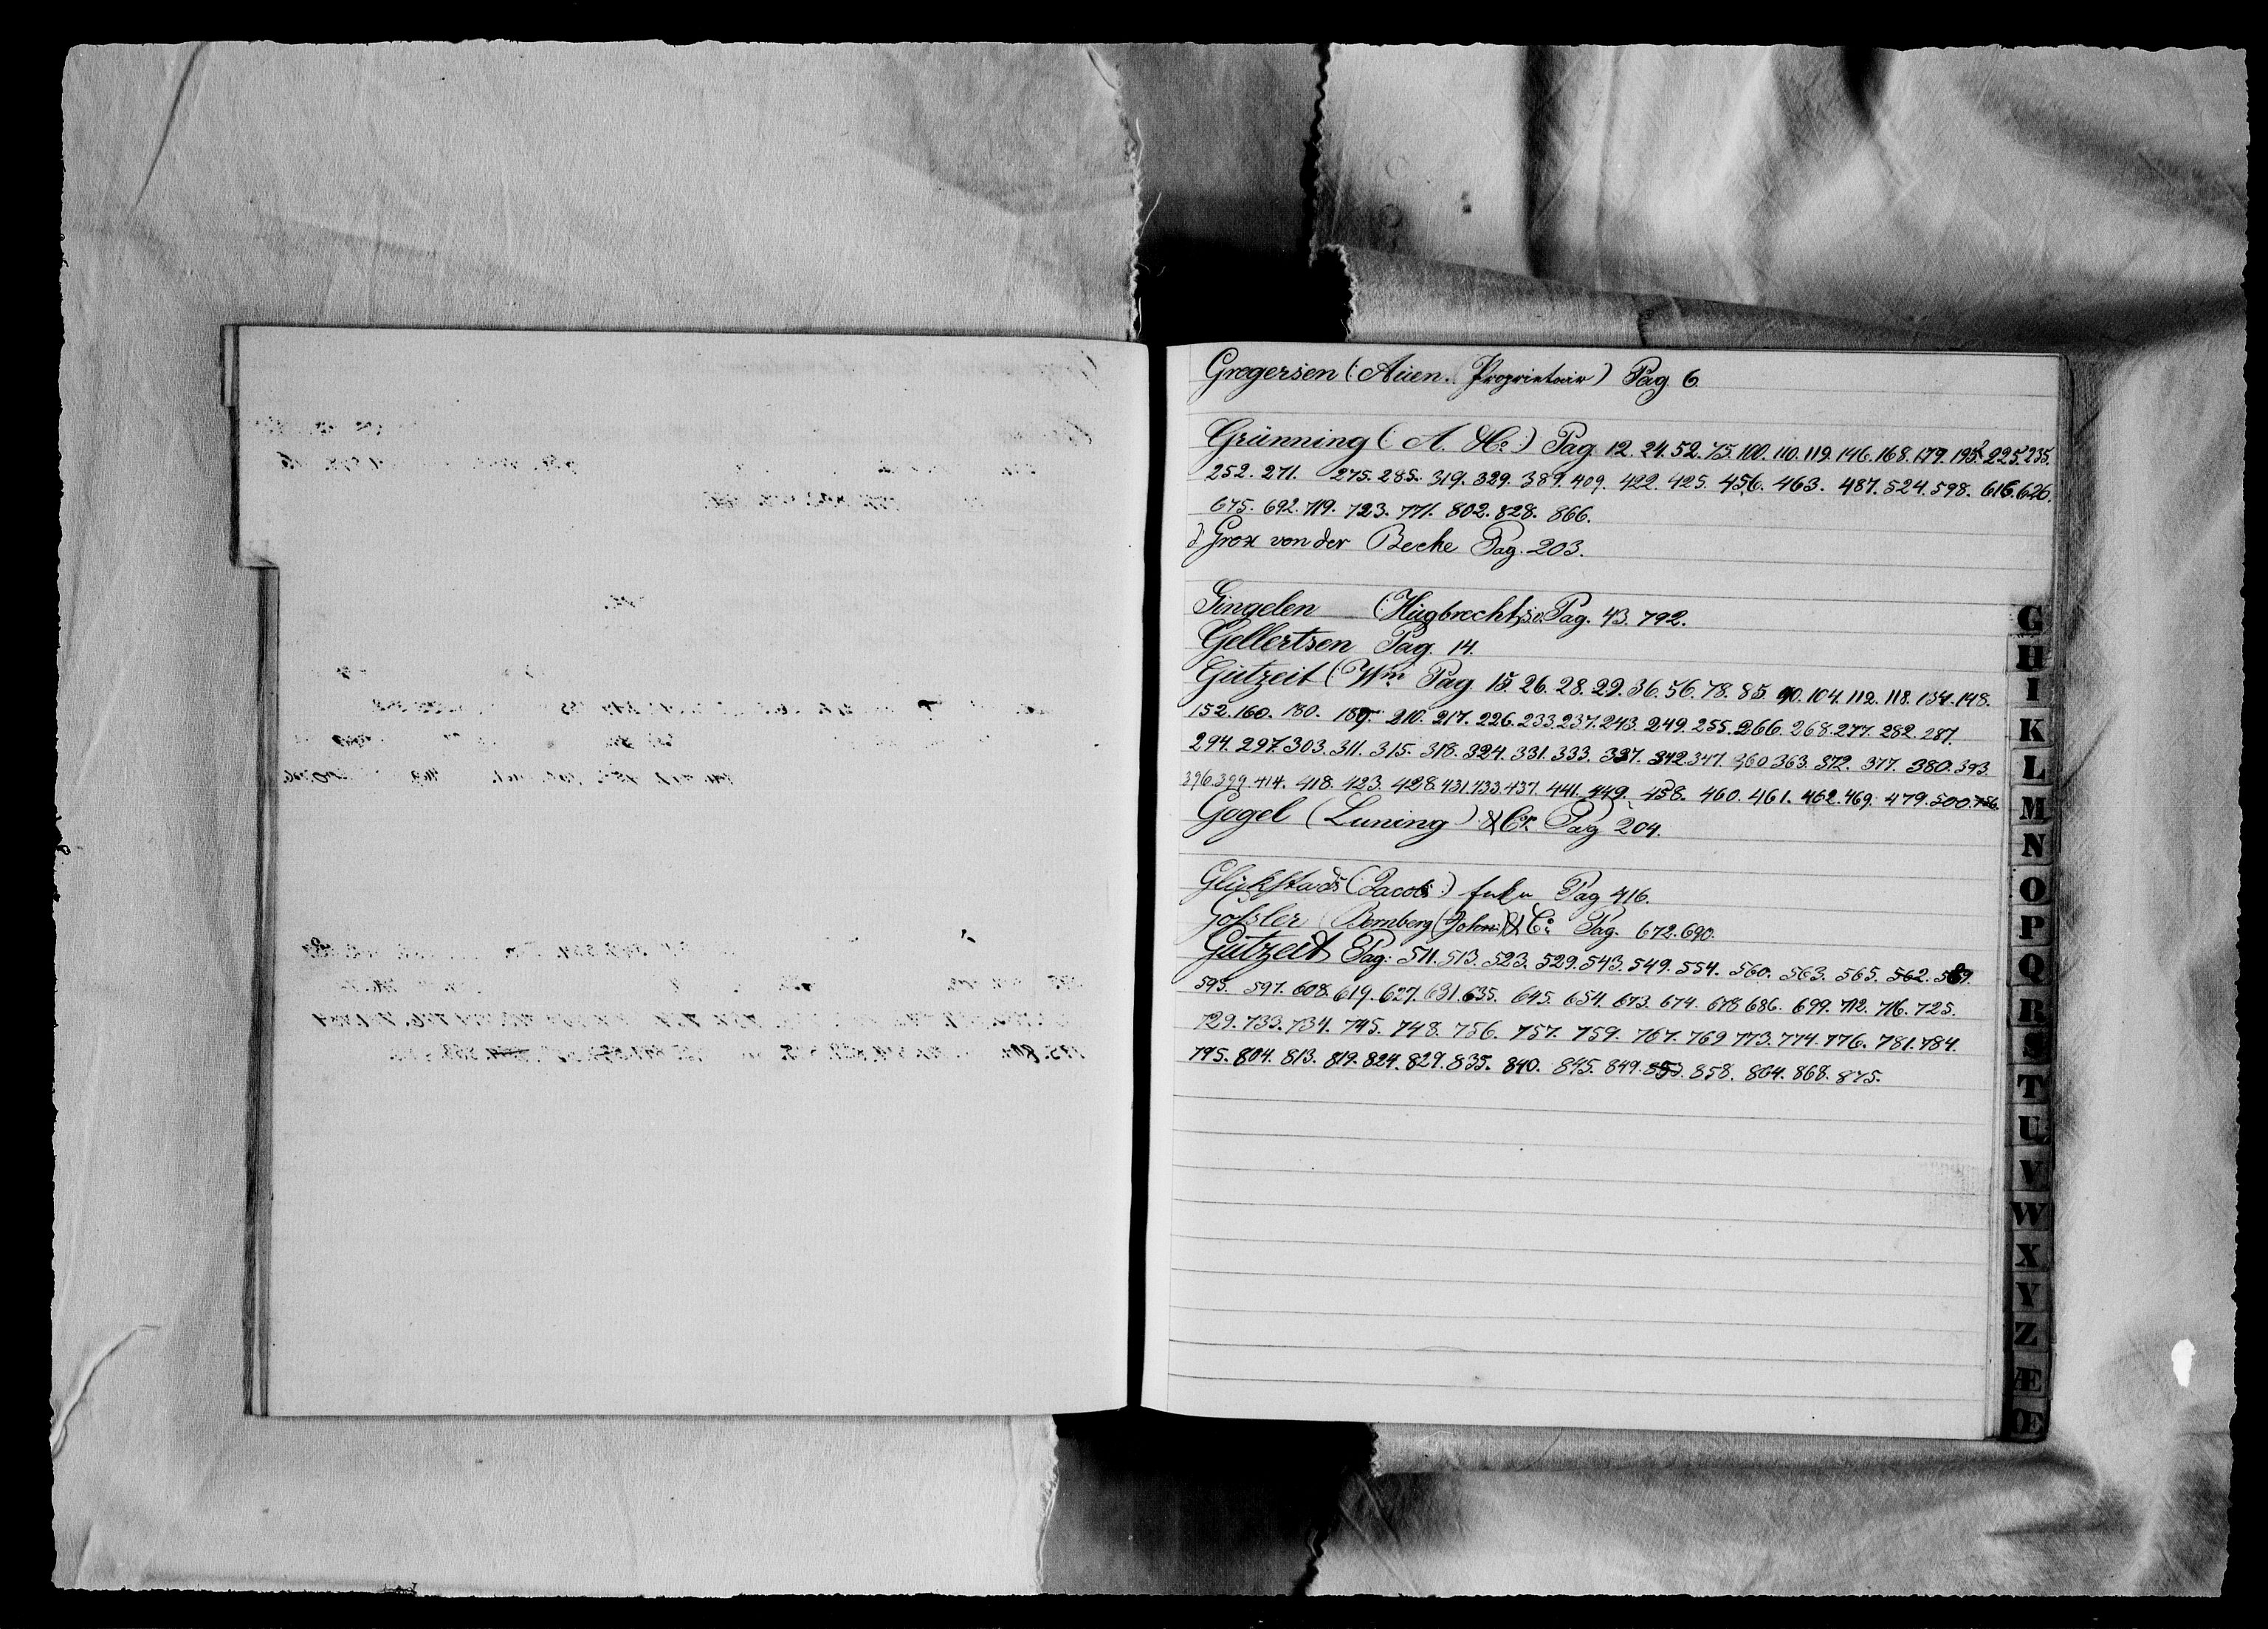 Gregersen (: Auen. Proprietair) Pag 6.
Grünning (: A. H:) Pag. 12. 24. 52. 75. 100. 110. 119. 146. 168. 179. 195. 225. 235.
252. 271. 275. 285. 319. 329. 389. 409. 422. 425. 456. 463. 487. 524. 598. 616. 626.
675. 692. 719. 723. 771. 802. 828. 866.
von der Becke Pag. 203.
Gingelen Pag. 43. 792.
Gellertsen Pag. 14.
Gützeit (: Wm Pag. 15. 26. 28. 29. 36. 56. 78. 85. 90. 104. 112. 118. 134. 148.
152. 160. 180. 189. 210. 217. 226. 233. 237. 243. 249. 255. 266. 268. 277. 282. 287.
294. 297. 303. 311. 315. 318. 324. 331. 333. 337. 342. 347. 360 363. 372. 377. 380. 393.
396. 399. 414. 418. 423. 428. 431. 433. 437. 441. 449. 458. 460. 461. 462. 469. 479. 500. 756.
Gogel (Luning) & Co. Pag 204.
Glükstads (: Jacob :) Pag 416.
Gossler Bernberg (Johan:) & Co: Pag. 672. 690.
Gützeit Pag: 511. 513. 523. 529. 543. 549. 554. 560. 563. 565. 562. 589.
595. 597. 608. 619. 627. 631. 635. 645. 654. 673. 674. 678 686. 699. 712. 716. 725.
729. 733. 734. 745. 748. 756. 757. 759. 767. 769 773. 774. 776. 781. 784.
795. 804. 813. 819. 824. 829. 835. 840. 845. 849. 853. 858. 864. 868. 875.
G
H
I
K
L
M
N
O
P
Q
R
S
T
U
V
W
X
Y
Z
Æ
Œ